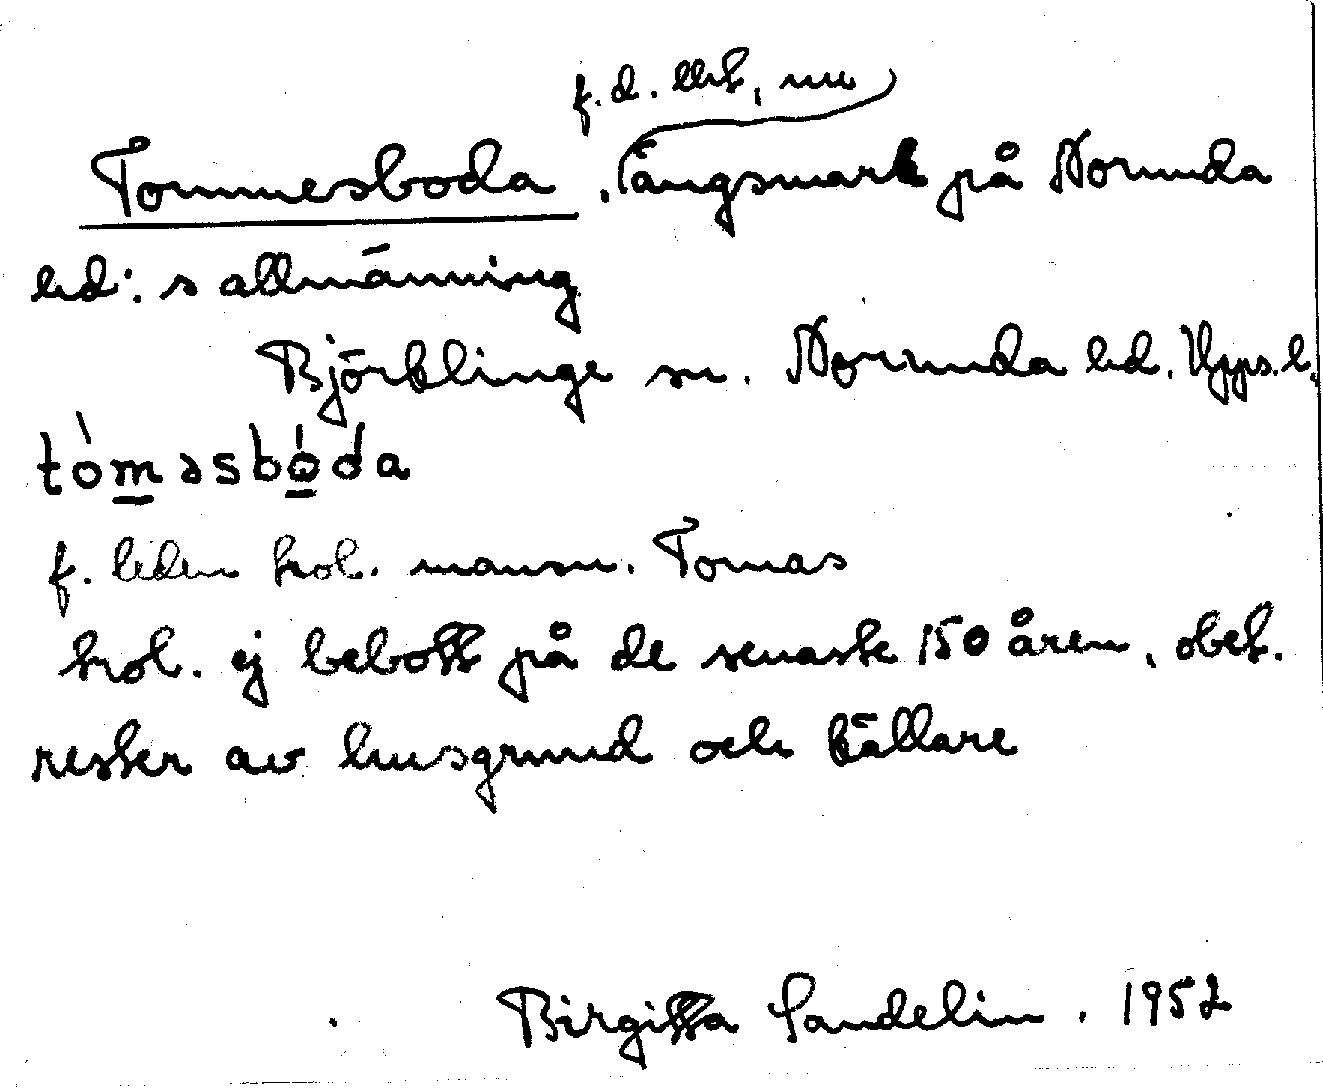 f. d. , nu
Tommesboda . ängsmark på Norunda
hd:s allmänning
Björklinge sn. Norunda hd. Upps. l.
tòm̲əsbó̲da
f. leden trol. mansn. Tomas
trol. ej bebott på de senaste 150 åren, obet.
rester av husgrund och källare
Birgitta Sandelin. 1952